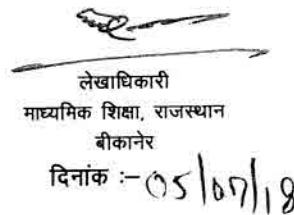 लेखाधिकारी
माध्यमिक शिक्षा, राजस्थान
बीकानेर
दिनांक :- 05/07/18